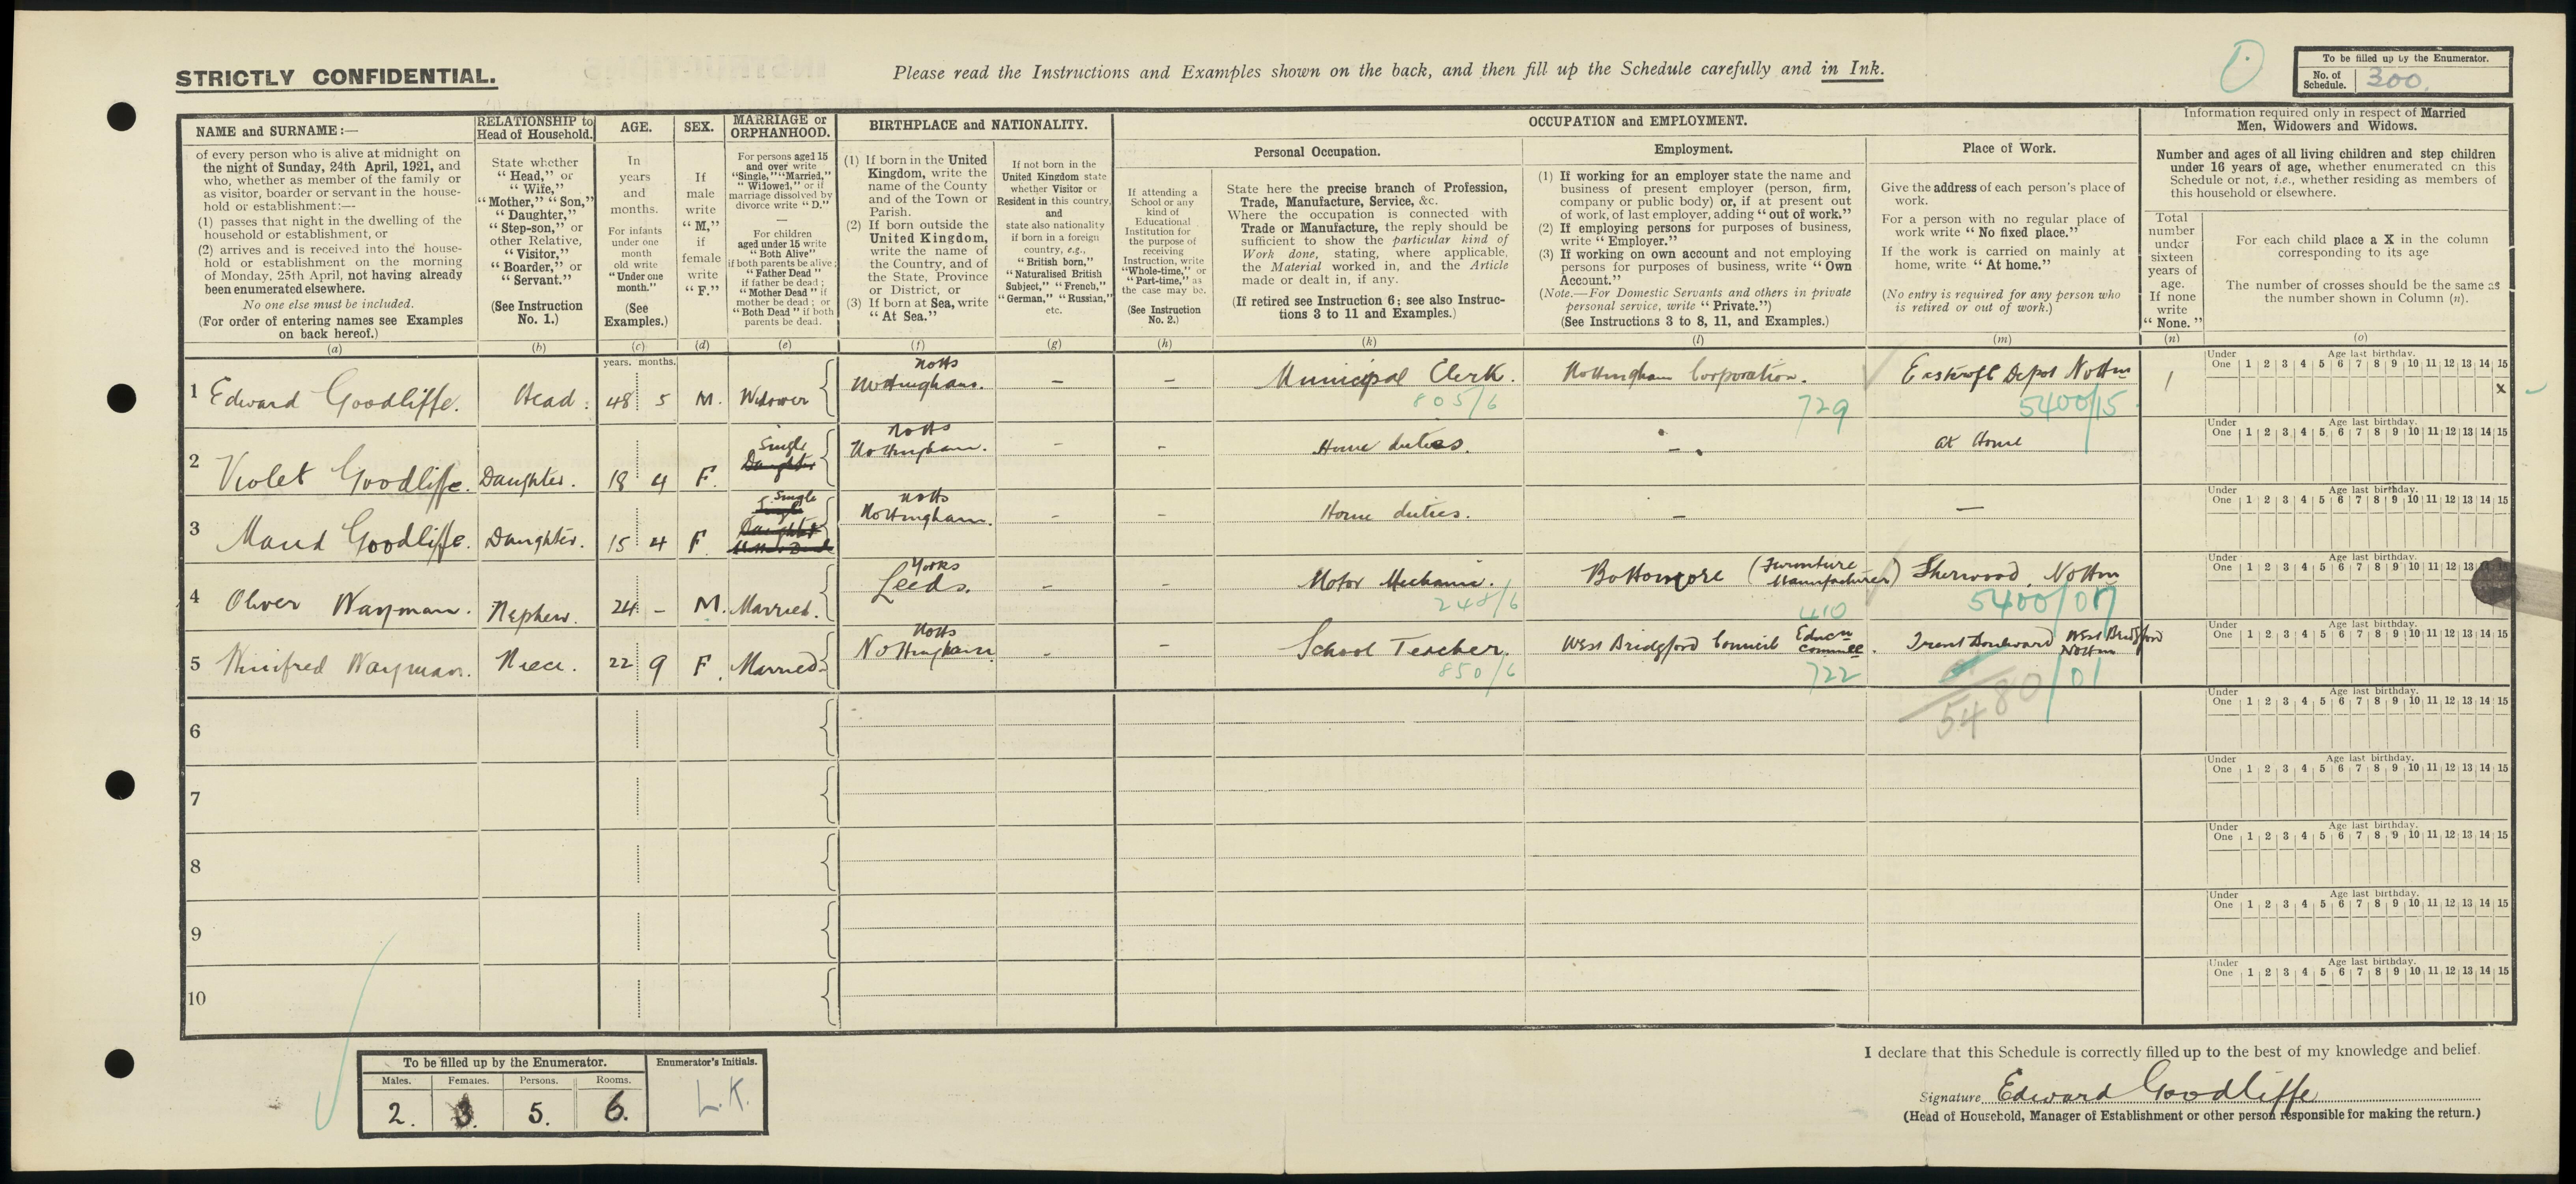 STRICTLY CONFIDENTIAL.
Please read the Instructions and Examples shown on the back, and then fill up the Schedule carefully and in Ink.
To be filled up by the Enumerator.
No. of Schedule. 300.
NAME and SURNAME:—
of every person who is alive at midnight on
the night of Sunday, 24th April, 1921, and
who, whether as member of the family or
as visitor, boarder or servant in the house-
hold or establishment:—
(1) passes that night in the dwelling of the
household or establishment, or
(2) arrives and is received into the house-
hold or establishment on the morning
of Monday, 25th April, not having already
been enumerated elsewhere.
No one else must be included.
(For order of entering names see Examples
on back hereof.)
(a)
RELATIONSHIP to
Head of Household.
State whether
"Head," or
"Wife,"
"Mother," "Son,"
"Daughter,"
"Step-son," or
other Relative,
"Visitor,"
"Boarder," or
"Servant."
(See Instruction
No. 1.)
(b)
AGE.
In
years
and
months.
For infants
under one
month
old write
"Under one
month."
(See
Examples.)
(c)
SEX.
If
male
write
"M,"
if
female
write
"F."
(d)
MARRIAGE or
ORPHANHOOD.
For persons aged 15
and over write
"Single," "Married,"
"Widowed," or if
marriage dissolved by
divorce write "D."
—
For children
aged under 15 write
"Both Alive"
if both parents be alive;
"Father Dead"
if father be dead;
"Mother Dead" if
mother be dead; or
"Both Dead" if both
parents be dead.
(e)
BIRTHPLACE and NATIONALITY.
(1) If born in the United
Kingdom, write the
name of the County
and of the Town or
Parish.
(2) If born outside the
United Kingdom,
write the name of
the Country, and of
the State, Province
or District, or
(3) If born at Sea, write
"At Sea."
(f)
If not born in the
United Kingdom state
whether Visitor or
Resident in this country,
and
state also nationality
if born in a foreign
country, e.g.,
"British born,"
"Naturalised British
Subject," "French,"
"German," "Russian,"
etc.
(g)
OCCUPATION and EMPLOYMENT.
If attending a
School or any
kind of
Educational
Institution for
the purpose of
receiving
Instruction, write
"Whole-time," or
"Part-time," as
the case may be.
(See Instruction
No. 2.)
(h)
Personal Occupation.
State here the precise branch of Profession,
Trade, Manufacture, Service, &c.
Where the occupation is connected with
Trade or Manufacture, the reply should be
sufficient to show the particular kind of
Work done, stating, where applicable,
the Material worked in, and the Article
made or dealt in, if any.
(If retired see Instruction 6; see also Instruc-
tions 3 to 11 and Examples.)
(k)
Employment.
(1) If working for an employer state the name and
business of present employer (person, firm,
company or public body) or, if at present out
of work, of last employer, adding "out of work."
(2) If employing persons for purposes of business,
write "Employer."
(3) If working on own account and not employing
persons for purposes of business, write "Own
Account."
(Note.—For Domestic Servants and others in private
personal service, write "Private.")
(See Instructions 3 to 8, 11, and Examples.)
(l)
Place of Work.
Give the address of each person's place of
work.
For a person with no regular place of
work write "No fixed place."
If the work is carried on mainly at
home, write "At home."
(No entry is required for any person who
is retired or out of work.)
(m)
Information required only in respect of Married
Men, Widowers and Widows.
Number and ages of all living children and step children
under 16 years of age, whether enumerated on this
Schedule or not, i.e., whether residing as members of
this household or elsewhere.
Total
number
under
sixteen
years of
age.
If none
write
"None."
(n)
For each child place a X in the column
corresponding to its age
The number of crosses should be the same as
the number shown in Column (n).
(o)
years. months.
Under One Age last birthday. 1 2 3 4 5 6 7 8 9 10 11 12 13 14 15
1 Edward Goodliffe. Head: 48 5 M. Widower Notts Nottingham. — — Municipal Clerk. Nottingham Corporation. Eastcroft Depot Nottm 1 x
805/6 729 5400/15
Under One Age last birthday. 1 2 3 4 5 6 7 8 9 10 11 12 13 14 15
2 Violet Goodliffe. Daughter. 18 4 F. Single Daughter Notts Nottingham. - - Home duties. - at Home
Under One Age last birthday. 1 2 3 4 5 6 7 8 9 10 11 12 13 14 15
3 Maud Goodliffe. Daughter. 15 4 F. Single Single Daughter Notts Nottingham. - - Home duties. — —
Under One Age last birthday. 1 2 3 4 5 6 7 8 9 10 11 12 13
4 Oliver Wayman. Nephew. 24 - M. Married. Yorks Leeds. - - Motor Mechanic. (Furniture Manufacturer) Sherwood, Nottm
248/6 410 5400/07
Under One Age last birthday. 1 2 3 4 5 6 7 8 9 10 11 12 13 14 15
5 Winifred Wayman. Niece. 22 9 F. Married Notts Nottingham - - School Teacher. West Bridgford Council Educn Commee. Trent Boulevard West Bridgford Nottm
850/6 722 5480/01
Under One Age last birthday. 1 2 3 4 5 6 7 8 9 10 11 12 13 14 15
6
Under One Age last birthday. 1 2 3 4 5 6 7 8 9 10 11 12 13 14 15
7
Under One Age last birthday. 1 2 3 4 5 6 7 8 9 10 11 12 13 14 15
8
Under One Age last birthday. 1 2 3 4 5 6 7 8 9 10 11 12 13 14 15
9
Under One Age last birthday. 1 2 3 4 5 6 7 8 9 10 11 12 13 14 15
10
To be filled up by the Enumerator.
Males. Females. Persons. Rooms.
2. 3. 5. 6.
Enumerator's Initials.
L.K.
I declare that this Schedule is correctly filled up to the best of my knowledge and belief.
Signature Edward Goodliffe
(Head of Household, Manager of Establishment or other person responsible for making the return.)